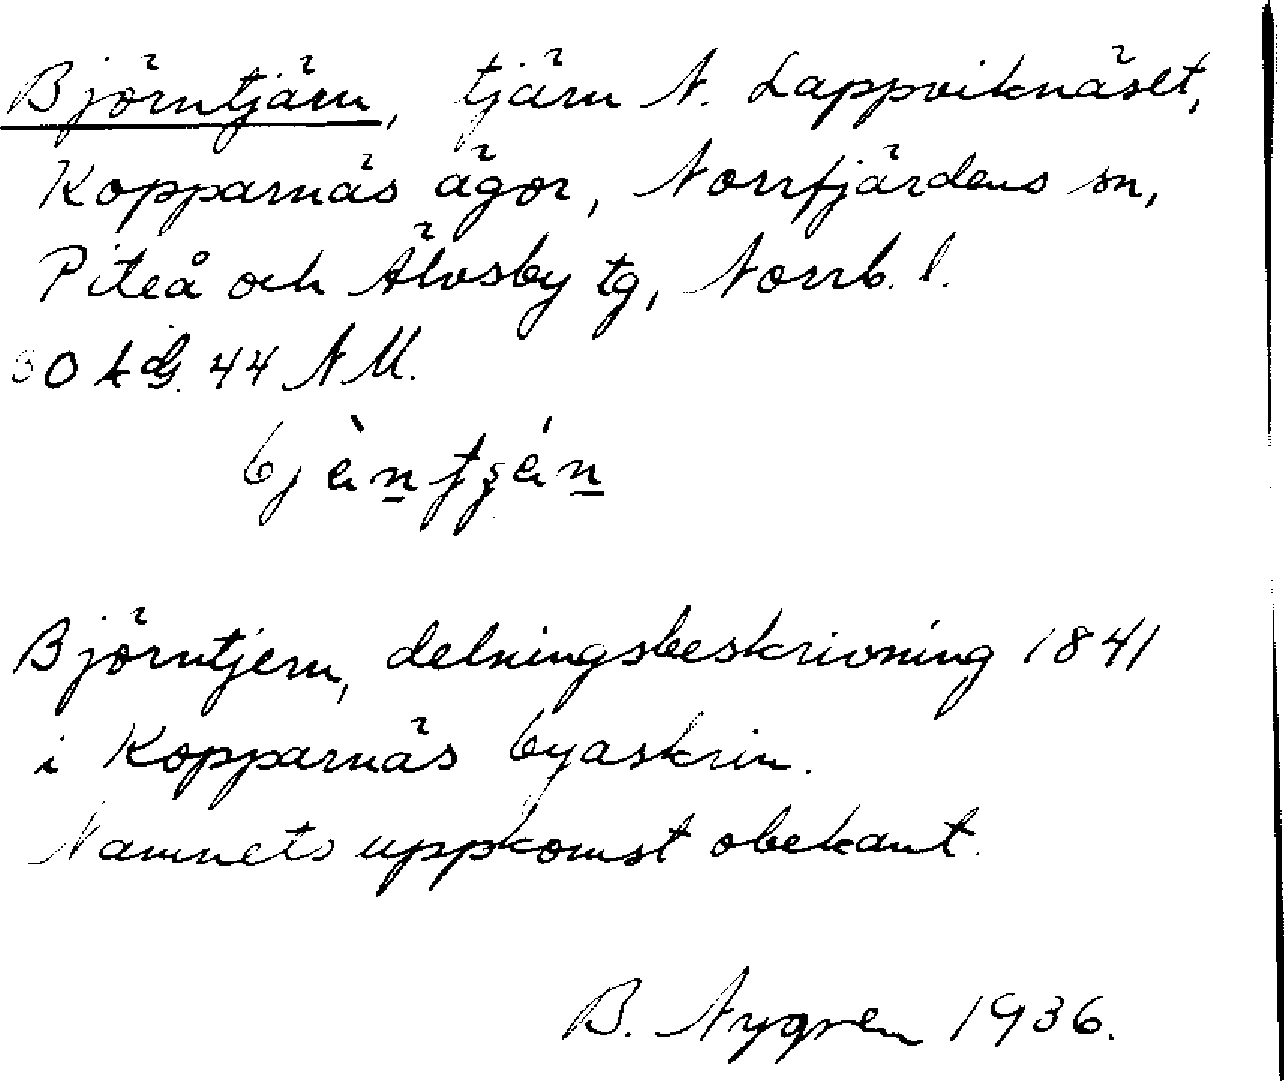 Björntjärn, tjärn N. Lappviknäset,
Kopparnäs ägor, Norrfjärdens sn,
Piteå och Älvsby tg, Norrb. l.
30 44 N M.
Björntjern, delningsbeskrivning 1841
i Kopparnäs byaskrin.
Namnets uppkomst obekant.
B. Nygren 1936.